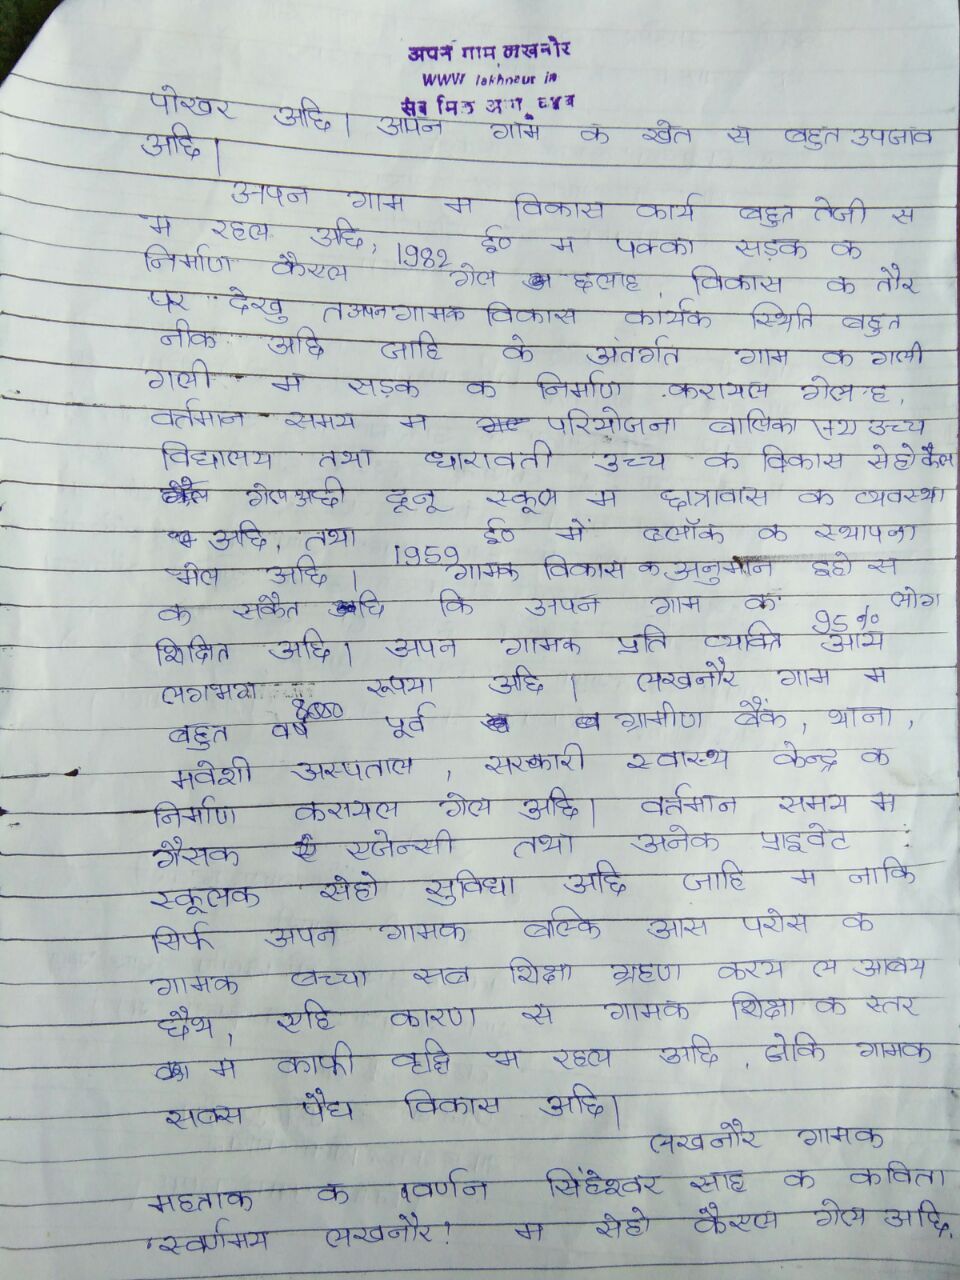 अपन गाम लखनोर
WWW lakhnaur in
सब मिल
पोखर अछि। अपन गाम क खेत स बहुत उपजाव
अछि।
अपन गाम म विकास कार्य बहुत तेजी स
भ रहल अछि, 1982 ई० म पक्का सड़क क
निर्माण कैएल गेल छलाह, विकास क तौर
पर देखु त अपन गामक विकास कार्यक स्थिति बहुत
नीक अछि जाहि के अंतर्गत गाम क गली
गली म सड़क क निर्माण करायल गेल ह,
वर्तमान समय म परियोजना बालिका उच्च
विद्यालय तथा धारावती उच्च क विकास सेहो कैल
गेल अछी दूनू स्कूल म छात्रावास क व्यवस्था
अछि, तथा 1959 ई० में ब्लॉक क स्थापना
भेल अछि। गामक विकास क अनुमान इहो स
क संकेत अछि कि अपन गाम क 95% लोग
शिक्षित अछि। अपन गामक प्रति व्यक्ति आय
लगभग 8000 रूपया अछि। लखनौर गाम म
बहुत वर्ष पूर्व ग्रामीण बैंक, थाना,
मवेशी अस्पताल, सरकारी स्वास्थ केन्द्र क
निर्माण करायल गेल अछि। वर्तमान समय म
गैसक एजेन्सी तथा अनेक प्राइवेट
स्कूलक सेहो सुविधा अछि जाहि म नाकि
सिर्फ अपन गामक बल्कि आस परोस क
गामक बच्चा सब शिक्षा ग्रहण करय ल आबय
छैथ, एहि कारण स गामक शिक्षा क स्तर
म काफी वृद्धि भ रहल अछि, जेकि गामक
सबस पैघ विकास अछि।
लखनौर गामक
महताक क वर्णन सिंहेश्वर साह क कविता
'स्वर्णमय लखनौर' म सेहो कैएल गेल अछि,